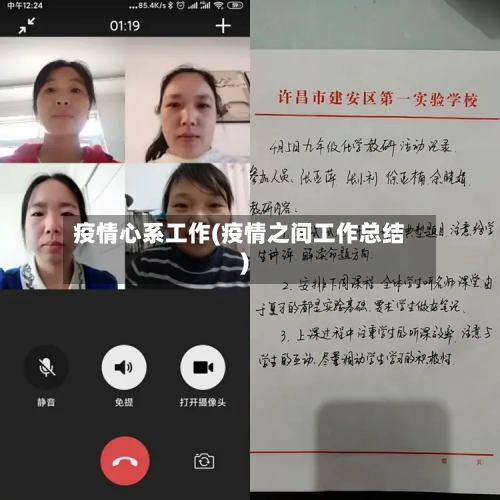 中午12:24
...85.4K/s
59
01:19
疫情心系工作(疫情之间工作总结
)
静音
免提
打开摄像头
许昌市建安区第一实验学校
4月5日九年级化学教研活动记录.
参加人员、张亚萍 张小利 徐亚楠 余晓娟
教研内容:
典型题目 注意给学
生讲评. 解读命题方向.
2、安排下周课程 全体学生听名师课堂由
于复习的都是实验基础. 要求学生做好笔记.
3、上课过程中注重学生的听课效率. 注意与
学生的互动. 尽量调动学生学习的积极性.
第 页